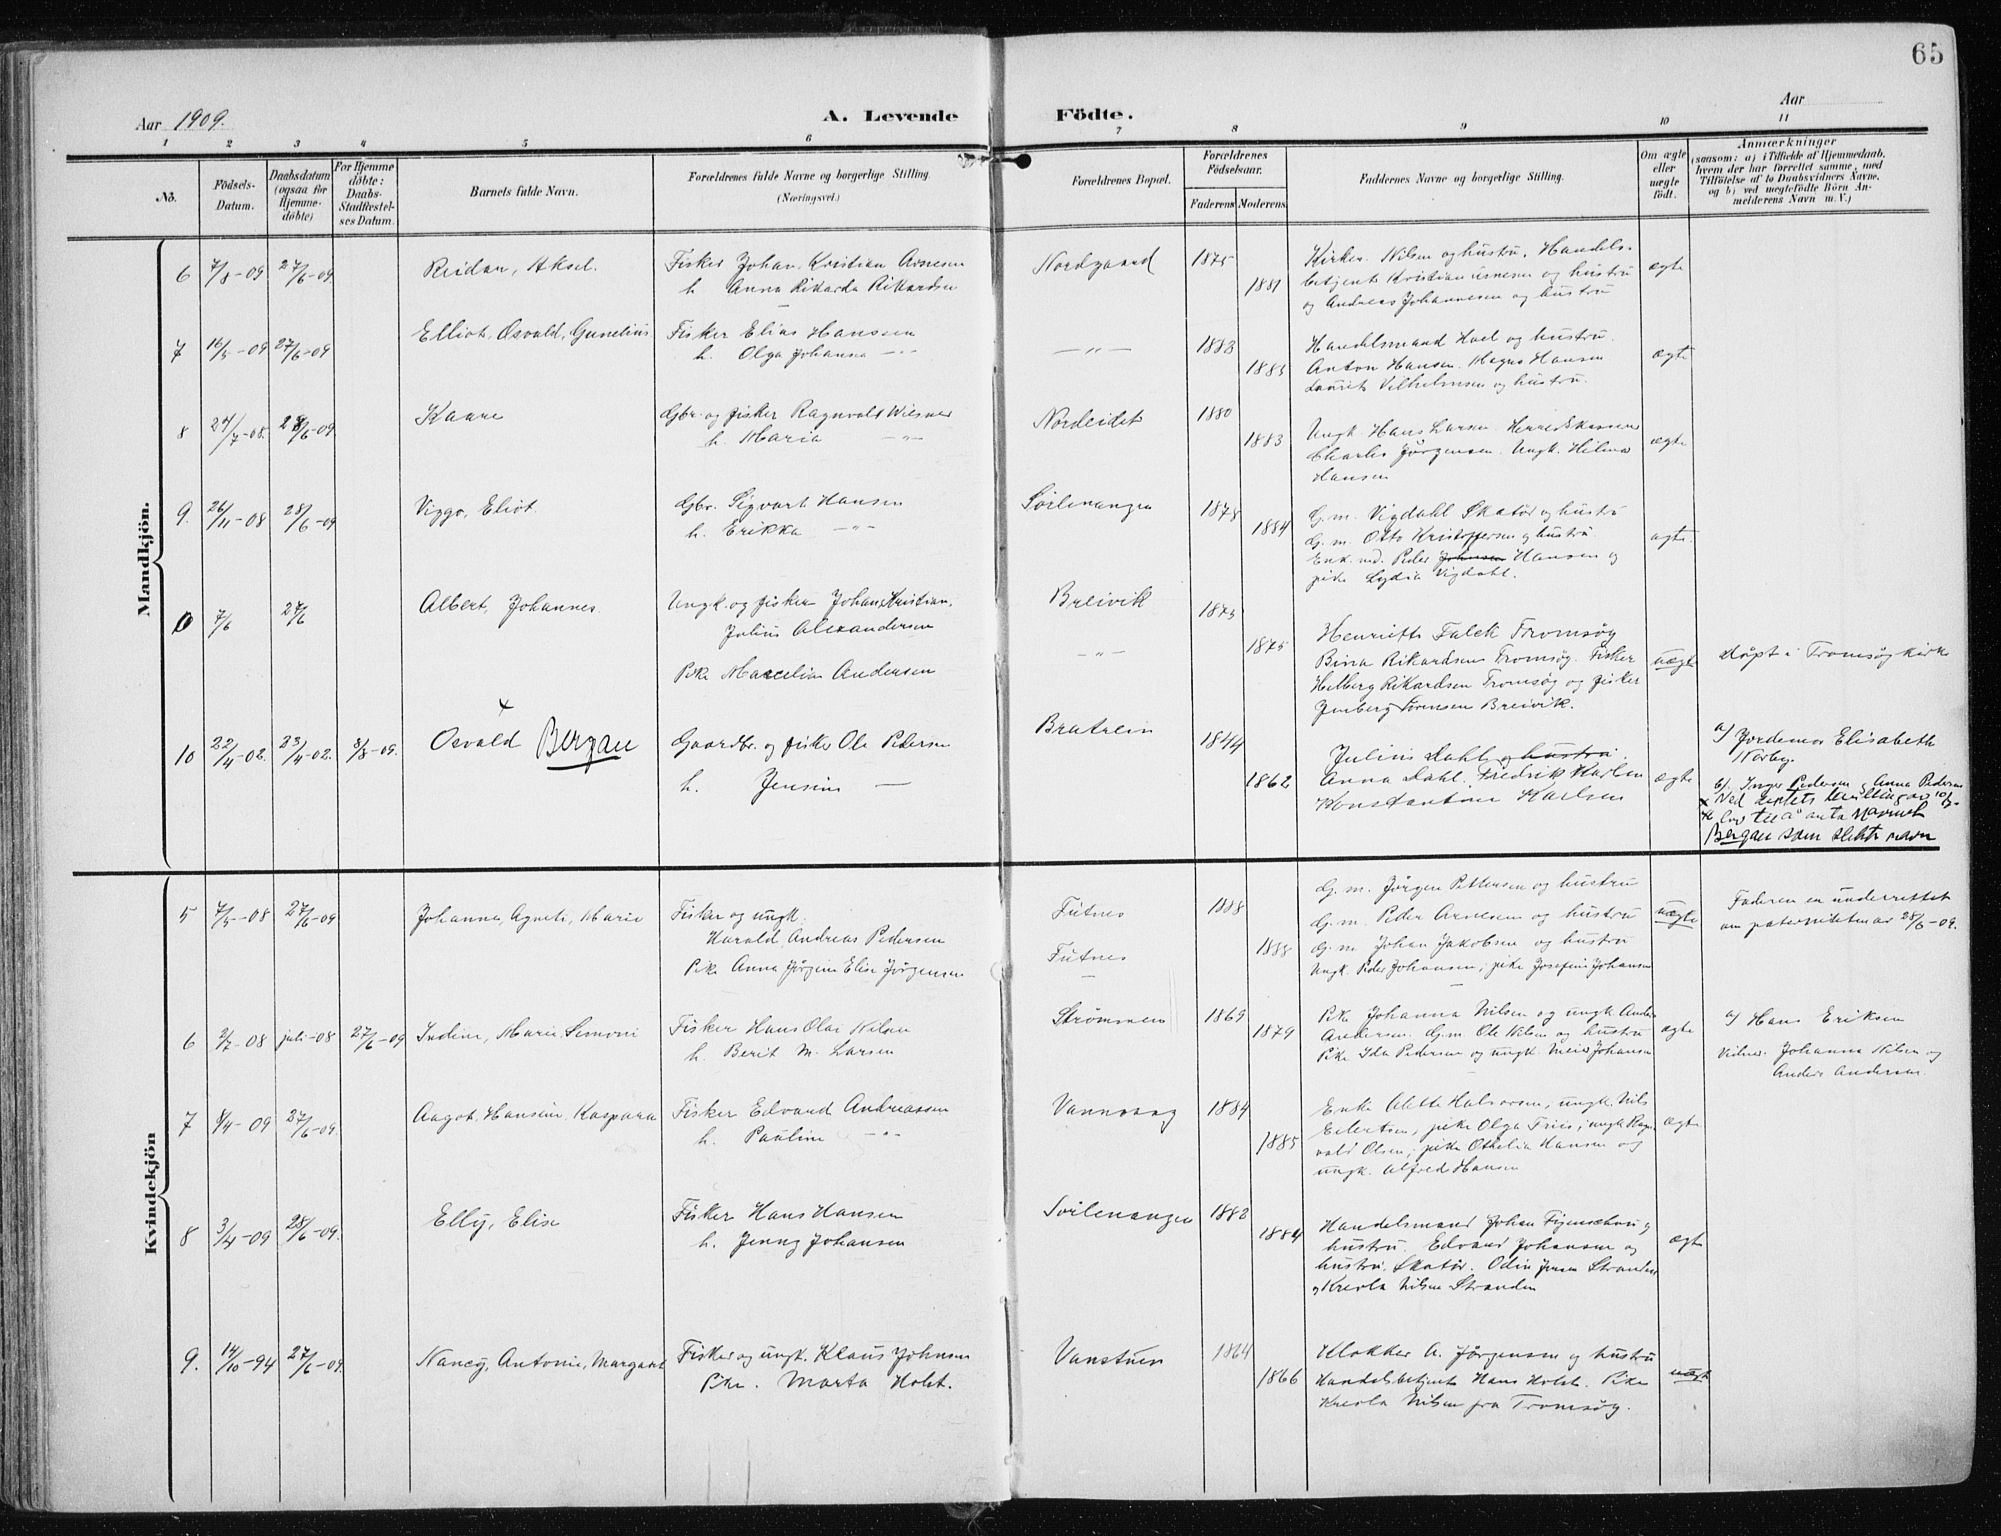 65
Aar 1909.
A. Levende Födte.
Aar
1 2 3 4 5 6 7 8 9 10 11
No.
Födsels-Datum.
Daabsdatum (ogsaa for Hjemmedöbte)
For Hjemmedöbte: Daabs Stadfæstelses Datum.
Barnets fulde Navn.
Forældrenes fulde Navne og borgerlige Stilling. (Næringsvei.)
Forældrenes Bopæl.
Forældrenes Födselsaar.
Faderens Moderens
Faddernes Navne og borgerlige Stilling.
Om ægte eller uægte födt.
Anmærkninger
(saasom: a) i Tilfælde af Hjemmedaab. hvem der har forrettet samme, med Tilföielse af to Daabsvidners Navne, og b) ved uegtefödte Börn Anmelderens Navn m. V.)
Mandkjön.
6 7/8-09 27/6-09 Reidar, Aksel. Fisker Johan Kristian Arnesen Nordgaard 1875 Kirkes. Nilsen og hustru. Handels-
h. Anna Rikarda Rikardsen 1881 betjent Kristian Arnesen og hustru ægte
og Andreas Johannesen og hustru
7 16/5-09 27/6-09 Elliot, Osvald, Gunelius Fisker Elias Hanssen — „ — 1883 Handelsmand Hoel og hustru.
h. Olga Johanna — „ — 1883 Anton Hansen. Magna Hansen ægte
Laurits Vilhelmsen og hustru.
8 24/7-08. 28/6-09 Kaare Gbr. og fisker Ragnvald Wiesner Nordeidet 1880
h. Maria — „ — 1883 Ungk. Hans Larsen. Herredskasserer ægte
Charles Jørgensen. Ungk. Hilmar
Hansen
9. 26/11-08 28/6-09 Viggo, Eliot. Gbr. Sigvart Hansen Sørlenangen 1878 G. m. Vigdahl Skatør og hustru
h. Erikka — „ — 1884 G. m. Otto Kristoffersen og hustru ægte.
Enkem. Peder Johnsen Hansen og
pike Lydia Vigdahl.
10 7/6 27/6 Albert, Johannes. Ungk. og fisker Johan Kristian, Breivik 1875
Julius Alexandersen Henriette Falck Tromsøy
Pike Marcelia Andersen — „ — 1875 Bina Rikardsen Tromsøy. Fisker uægte døpt i Tromsøy kirke
Helberg Rikardsen Tromsøy og fisker
Jenberg Sørensen Breivik.
10 22/4-02. 23/4-02. 8/8-09. Osvald x Bergan Gaardbr. og fisker Ole Pedersen Bratrein 1844 Julius Dahl og hustru.
h. Jensine — 1862 Anna Dahl. Fredrik Karlsen ægte
Konstantine Karlsen
a) Jordemor Elisabeth
Norby.
b). Inger Pedersen og Anna Pedersen
x Ved
lov til å anta navnet
Bergan som slektsnavn
Kvindekjön
5 7/5-08 27/6-09 Johanna, Agnete, Marie Fisker og ungk. Fütnes 1888 G. m. Jørgen Pettersen og hustru
Harald Andreas Pedersen G. m. Peder Arnesen og hustru uægte Faderen er underrettet
Pike Anna Jørgine Elise Jørgensen Fütnes 1888 G. m. Johan Jakobsen og hustru om paternitetmar 28/6-09.
Ungk. Peder Johansen; pike Josefine Johansen
6 2/7-08 juli-08 27/6-09 Indine, Marie Simoni Fisker Hans Olai Nilsen Strømmen 1869 Pike Johanna Nilsen og ungk. Anders
h. Berit M. Larsen 1879 Andersen. G. m. Ole Nilsen og hustru ægte a) Hans Eriksen
Pike Ida Pedersen og ungk. Meier Johansen Vidner. Johanna Nilsen og
Anders Andersen.
7 8/4-09 27/6-09. Aagot, Hansine, Kaspara Fisker Edvard Andreassen Vannvaag 1884 Enke Alette Halvorsen, ungk. Nils
h. Pauline — „ — 1885 Eilertsen, pike Olga Fries; ungk. Ragn- ægte
vald Olsen; pike Othelia Hansen og
ungk. Alfred Hansen
8 3/4-09 28/6-09. Elly, Elise Fisker Hans Hansen Sørlenangen 1882
h. Jenny Johansen 1884 Handelsmand Johan og ægte
hustru. Edvard Johansen og
hustru. Skatør. Odin Jensen Stranden
og Kreola Nilsen Stranden
9. 14/10-94 27/6-09. Nancy, Antonie, Margaret Fisker og ungk. Klaus Johnsen Vanstuen 1864 Klokker A. Jørgensen og hustru
Pike. Marta Holst. 1866 Handelsbetjent Hans Holst. Pike uægte
Kreola Nilsen fra Tromsøy.